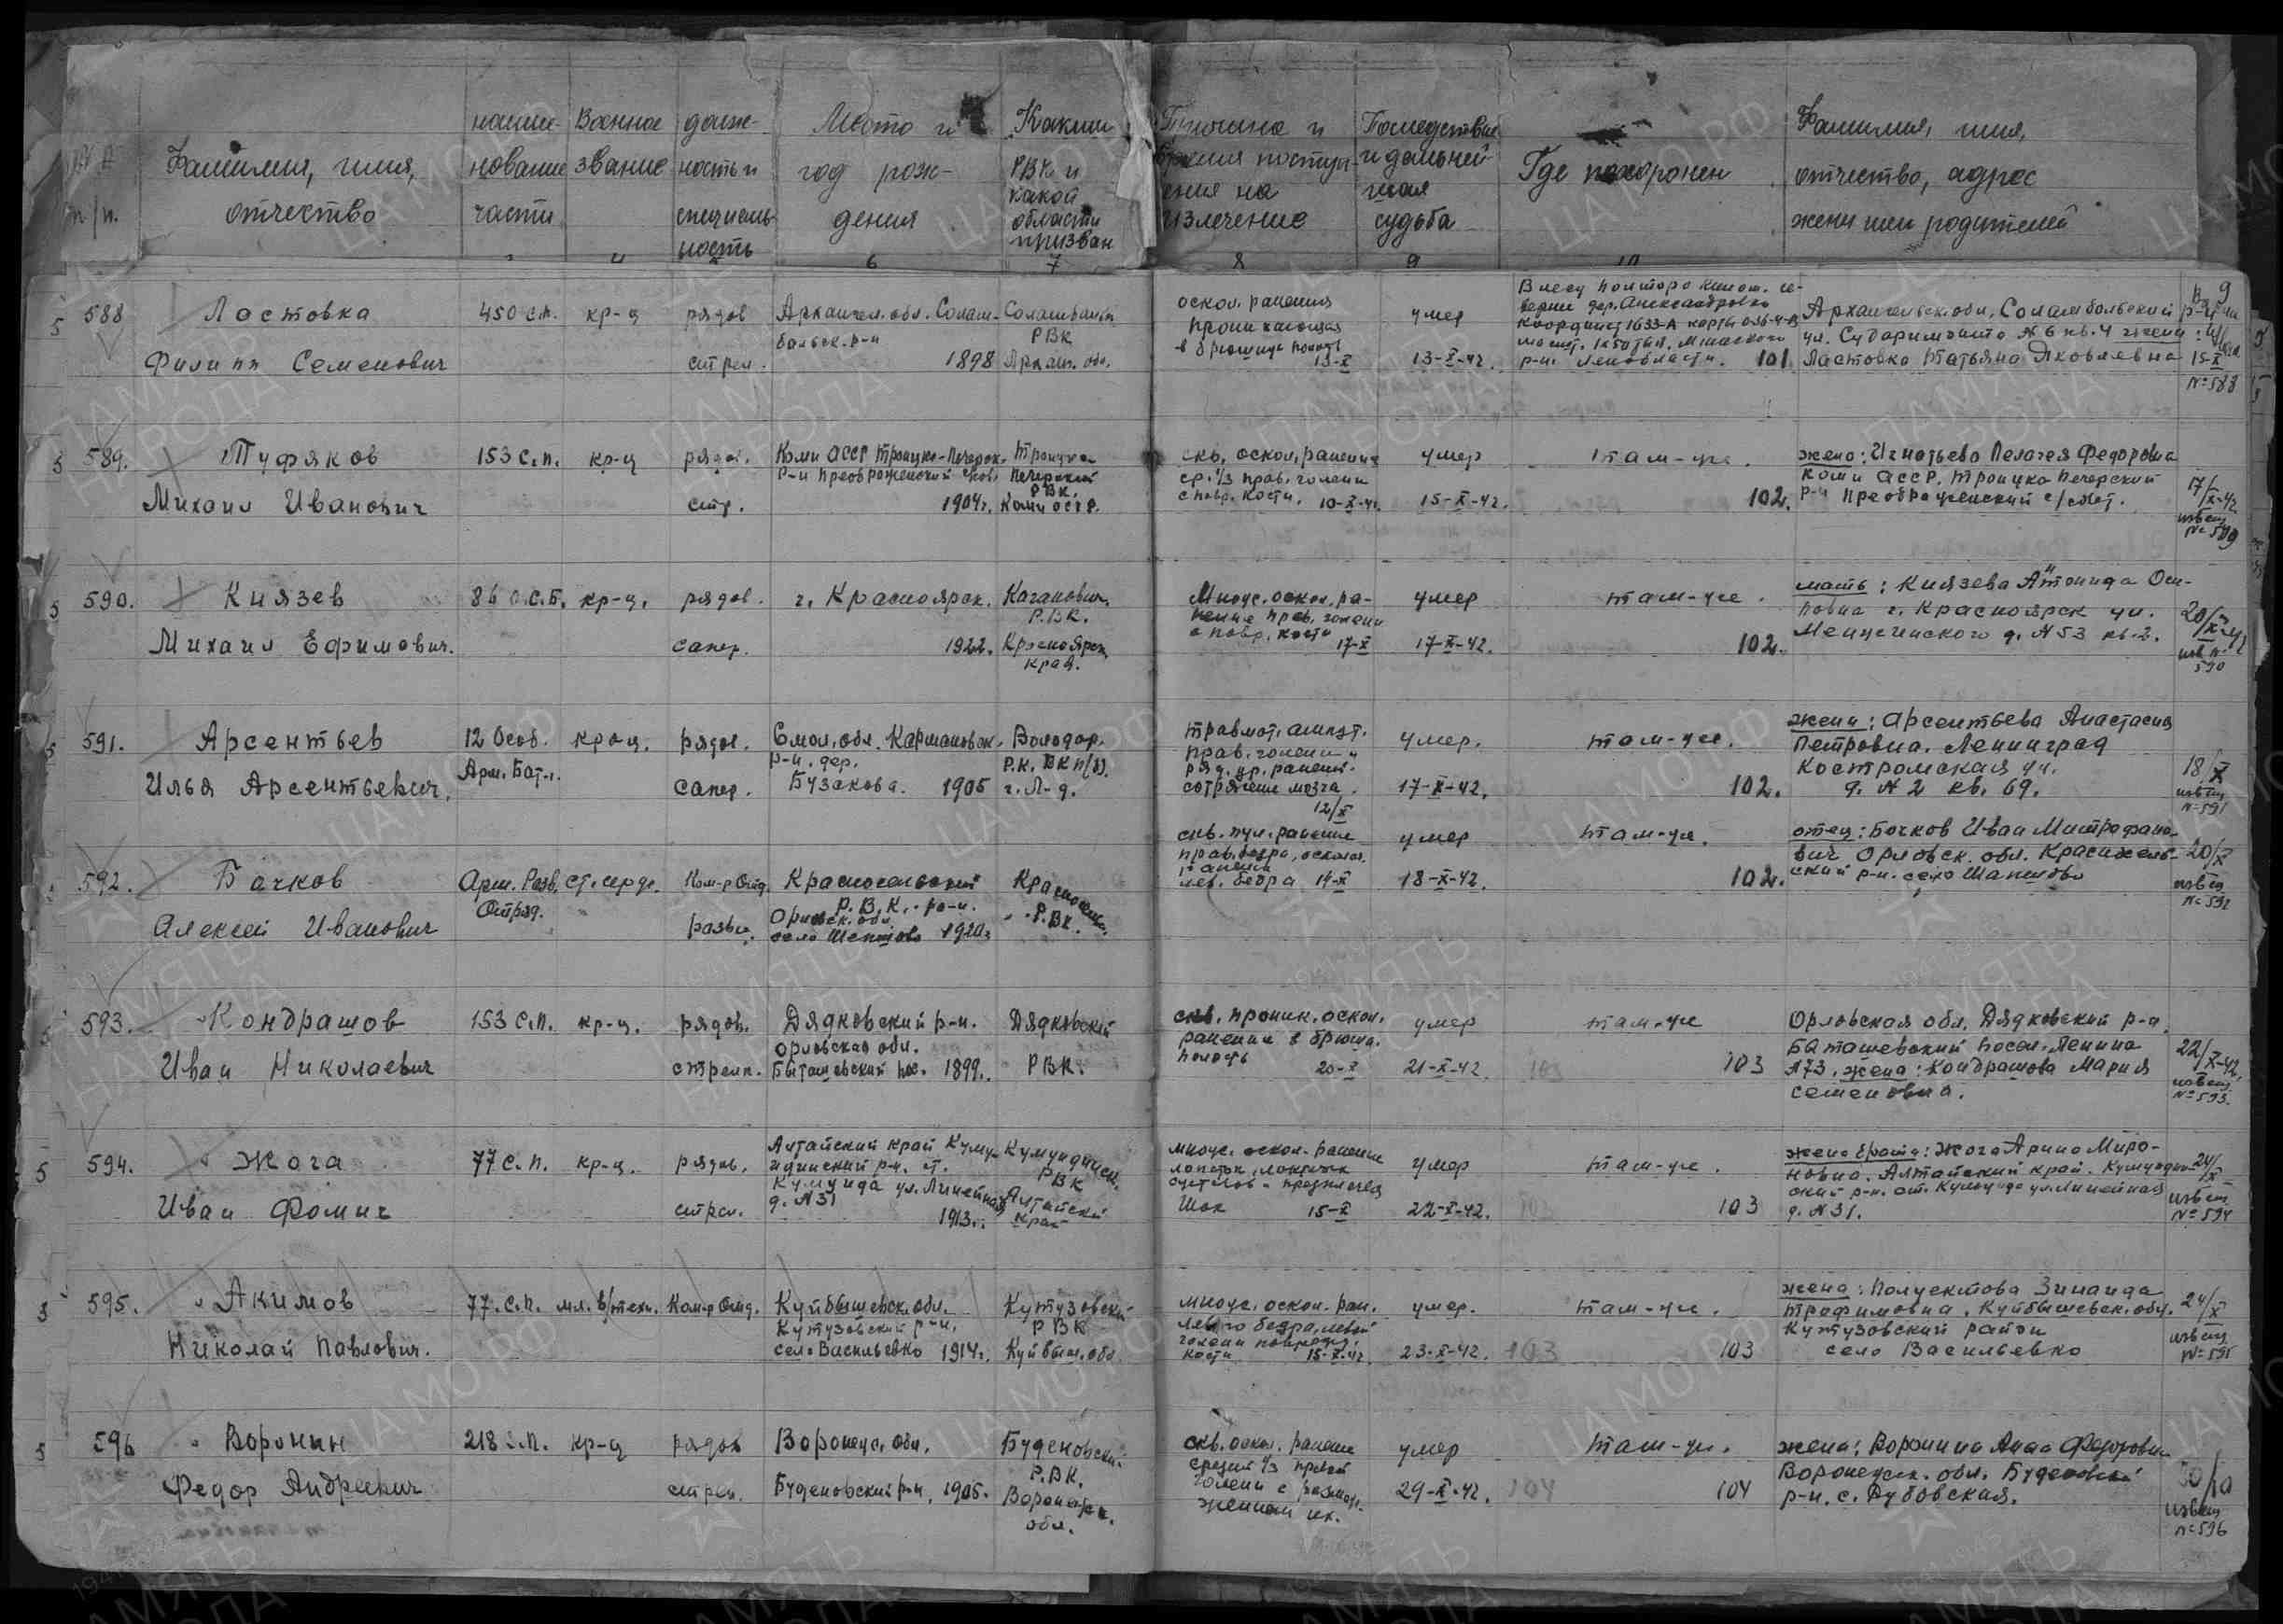 №№ п/п.
Фамилия, имя, отчество
наиме-нование части
Военное звание
долж-ность и специаль-ность
Место и год рож-дения
Каким РВК и какой области призван
Причина и время поступ-ления на излечение
Последствие и дальней-шая судьба
Где похоронен
Фамилия, имя, отчество, адрес жены или родителей
6 7 8 9 10
588 Ластовка
Филипп Семенович
450 с.п. кр-ц рядов
стрел.
Архангел. обл. Солам-
больск. р-н
1898
Соламбальск
РВК
Архан. обл.
оскол. ранения
проникающая
в брюшную полость
13-X
умер
13-X-42.
В лесу полтора килом. се-
вернее дер. Александровка
Координ 1633-А карты
р-н. Ленобласти. 101
Архангельск. обл. Соламбольский р-н
ул. Сударима №6 кв. 4 жена:
Ластовка Татьяна Яковлевна
15-X
№588
589. Туфяков
Михаил Иванович
153 с.п. кр-ц рядов.
стр.
Коми АССР Троицко-Печорск.
р-н Преображенский сков.
1904г.
Троицко-
Печорский
РВК.
Коми АССР.
скв. оскол. ранение
ср. 1/3 прав. голени
с повр. кости. 10-X-42.
умер
15-X-42.
там-же.
102.
жена: Игнатьева Пелагея Федоровна
Коми АССР. Троицко Печерский
р-н Преображенский с/совет.
17/X-42
извещ
№589
590. Князев
Михаил Ефимович.
86 О.С.Б. кр-ц. рядов.
сапер.
г. Красноярск.
1922.
Каганович.
Р.В.К.
Красноярск.
край.
Множ. оскол. ра-
нение прав. голени
с повр. кости
17-X
умер
17-X-42.
там-же.
102.
мать: Князева Антонида Оси-
повна г. Красноярск ул.
Менжинского д. №53 кв. 2.
20/X-42
изв №
590
591. Арсентьев
Илья Арсентьевич.
12 Особ.
Арм. Бат-н.
кр-ц. рядов.
сапер.
Смол. обл. Кармановск.
р-н. дер.
Бузакова. 1905
Володар.
г. Л-д.
травмат. ампут.
прав. голени и
ряд. др. ранений.
сотрясение мозга.
12/X
умер.
17-X-42.
там-же.
102.
жена: Арсентьева Анастасия
Петровна. Ленинград
Костромская ул.
д. №2 кв. 69.
18/X
извещ
№591
592. Бачков
Алексей Иванович
Арм. Разв.
Отряд.
ст. серж.
Ком-р отд.
разв.
Красносельский
Р.В.К. р-н.
Орловск. обл.
село Шепшово 1920г
Красносельск.
Р.ВК.
скв. пул. ранение
прав. бедра, оскол.
ранения
лев. бедра 14-X
умер
18-X-42.
там-же.
102.
отец: Бочков Иван Митрофано-
вич Орловск. обл. Краснжель-
ский р-н. село Шапшово
20/X
извещ
№592
593. Кондрашов
Иван Николаевич
153 с.п. кр-ц. рядов.
стрелк.
Дядковский р-н.
Орловская обл.
Быташевский пос. 1899.
Дядковский
РВК.
скв. проник. оскол.
ранения в брюшн.
полость 20-X
умер
21-X-42.
там-же
103 103
Орловская обл. Дядковский р-н
Баташевский посел. Ленина
№73. жена: Кондрашова Мария
Семеновна.
22/X-42.
извещ
№593.
594. Жога
Иван Фомич
77 с.п. кр-ц. рядов.
стрел.
Алтайский край Кулун-
динский р-н. ст.
Кулунда ул. Линейная
д. №31
1913г.
Кулундинск.
РВК
Алтайский
край
множ. оскол. ранение
лопаток, локтевых
суставов и предплечья
Шок 15-X
умер
22-X-42.
там-же.
103 103
жена брата: Жога Арина Миро-
новна. Алтайский край. Кулундин-
ский р-н. ст. Кулунда ул. Линейная
д. №31.
24/X
извещ
№594
595. Акимов
Николай Павлович.
77. с.п. мл. в/техн. Ком-р отд.
Куйбышевск. обл.
Кутузовский р-н.
село Васильевка 1914г.
Кутузовский
РВК
Куйбыш. обл.
множ. оскол. ран.
левого бедра, левой
голени поврежд.
кости 15-X-42
умер.
23-X-42.
там-же.
103 103
жена: Полуектова Зинаида
Трафимовна. Куйбышевск. обл.
Кутузовский район
село Васильевка
24/X
извещ
№595
596 Воронин
Федор Андреевич
218 с.п. кр-ц рядов
стрел.
Воронеж. обл.
Буденовский р-н. 1905.
Буденовский
Р.ВК.
Воронежск.
обл.
скв. оскол. ранение
средней 1/3 правой
голени с размозж-
жением их.
умер
29-X-42.
там-же.
104 104
жена: Воронина Анна Федоровна
Воронежск. обл. Буденовский
р-н. с. Дубовская.
30/10
извещ
№596
ПАМЯТЬ НАРОДА
ЦА МО РФ